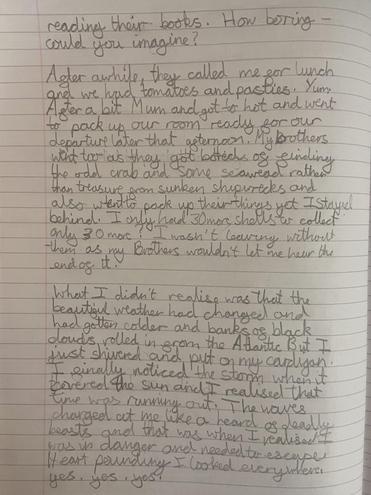 reading their books. How boring -
could you imagine?
Agter awhile, they called me gor lunch
and we had tomatoes and pasties. Yum
Agter a bit Mum and got to hot and went
to pack up our room ready gor our
departure later that agternoon. My Brothers
went too as they got bored og ginding
the odd crab and some seawead rather
than treasure grom sunken shipwrecks and
also went to pack up their things yet I stayed
behind. I only had 30 more shells to collect
only 30 more! I wasn't leaving without
them as my Brothers wouldn't let me hear the
end og it.
What I didn't realise was that the
beautigul weather had changed and
had gotten colder and banks og black
clouds rolled in grom the Atlantic But I
just shivered and put on my cardigan.
I ginally noticed the storm when it
covered the sun and I realised that
time was running out. The waves
charged at me like a heard og deadly
beasts and that was when I realised I
was in danger and needed to escape
Heart pounding I looked everywhere
yes, yes, yes!